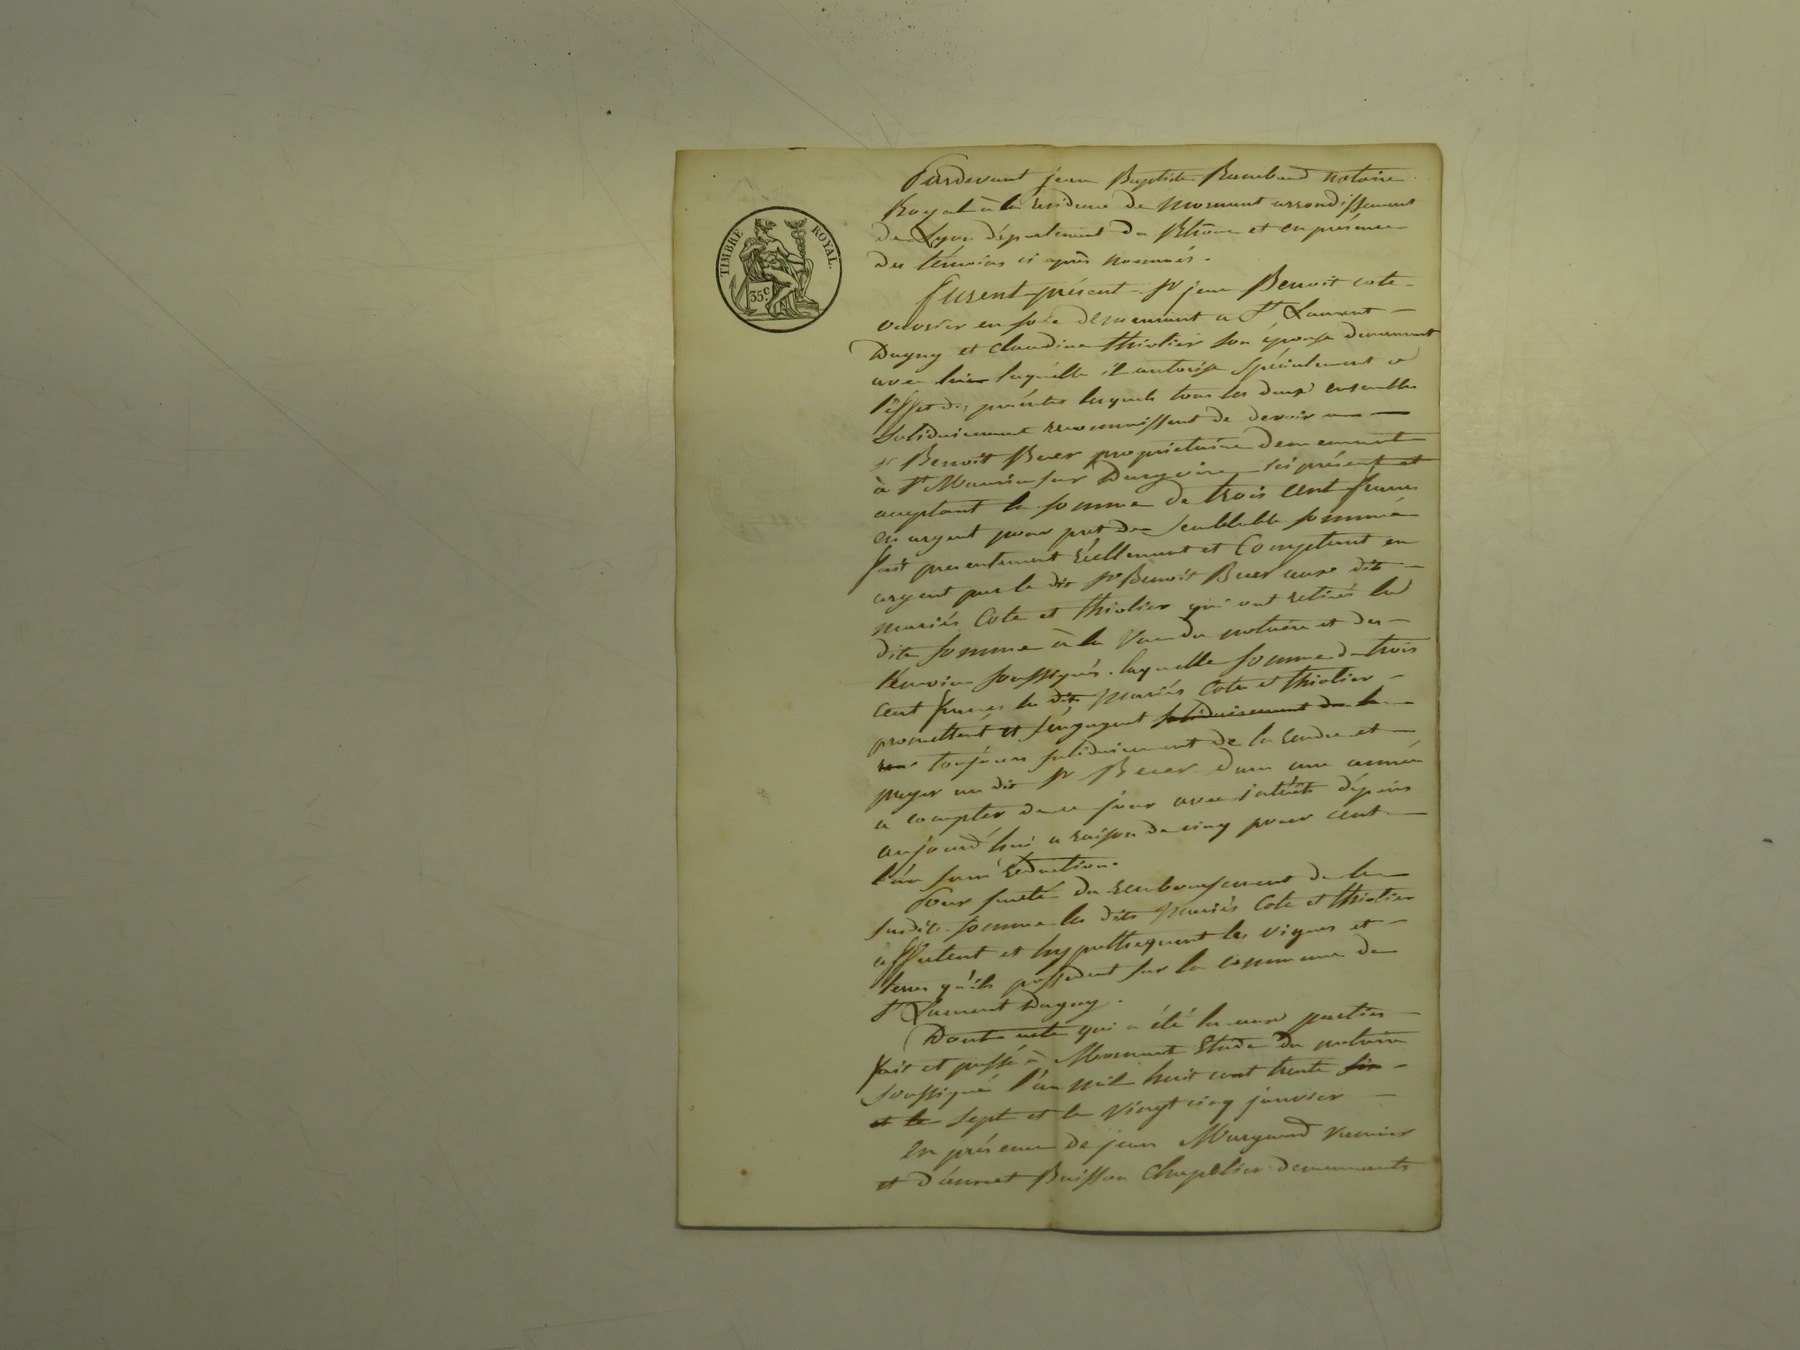 TIMBRE ROYAL.
35c.
Pardevant jean Baptiste Rambaud notaire
Royal à la residence de Mornant arrondissement
de Lyon département du Rhône et en présence
des témoins ci après nommés.
furent présent Sr jean Benoit cote
ouvrier en soie demeurant a St Laurent
Dagny et claudine thiolier son épouse demeurant
avec lui laquelle il autorise spécialement a
l'effet des présentes lesquels tous les deux ensembles
solidairement reconnoissent de devoir a
Sr Benoit Buer proprietaire demeurant
à St Maurice sur Dargoire ici présent et
acceptant la somme de trois cent francs
en argent pour pret de semblable somme
fait presentement réellement et Comptant en
argent par le dit Sr Benoit Buer aux dits
mariés Cote et thiolier qui ont retirés la
dite somme à la Vue du notaire et des
témoins soussignés. laquelle somme de trois
cent francs les dits mariés Cote et thiolier
promettent et s'engagent solidairement de la
toujours solidairement de la rendre et
payer au dit Sr Buer dans une année
a compter de ce jour avec intérêts dépuis
aujourd'hui a raison de cinq pour cent
l'an sans réduction.
Pour sureté du remboursement de la
susdite somme les dits mariés Cote et thiolier
affectent et hypothequent les vignes et
terres qu'ils possedent sur la commune de
St Laurent Dagny.
Dont acte qui a été lu aux parties
fait et passé à Mornant Etude du notaire
soussigné l'an mil huit cent trente six
et le sept et le vingt cinq janvier
en présence de jean Margand
et d'ennet Buisson Chapelier demeurants